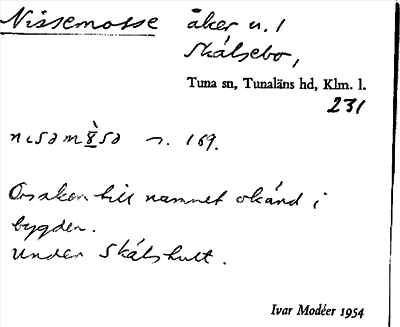 Nissemosse åker u. 1
Skålsebo,
Tuna sn, Tunaläns hd, Klm. l.
231
s. 169.
Orsaken till namnet okänd i
bygden.
Under Skålshult.
Ivar Modéer 1954